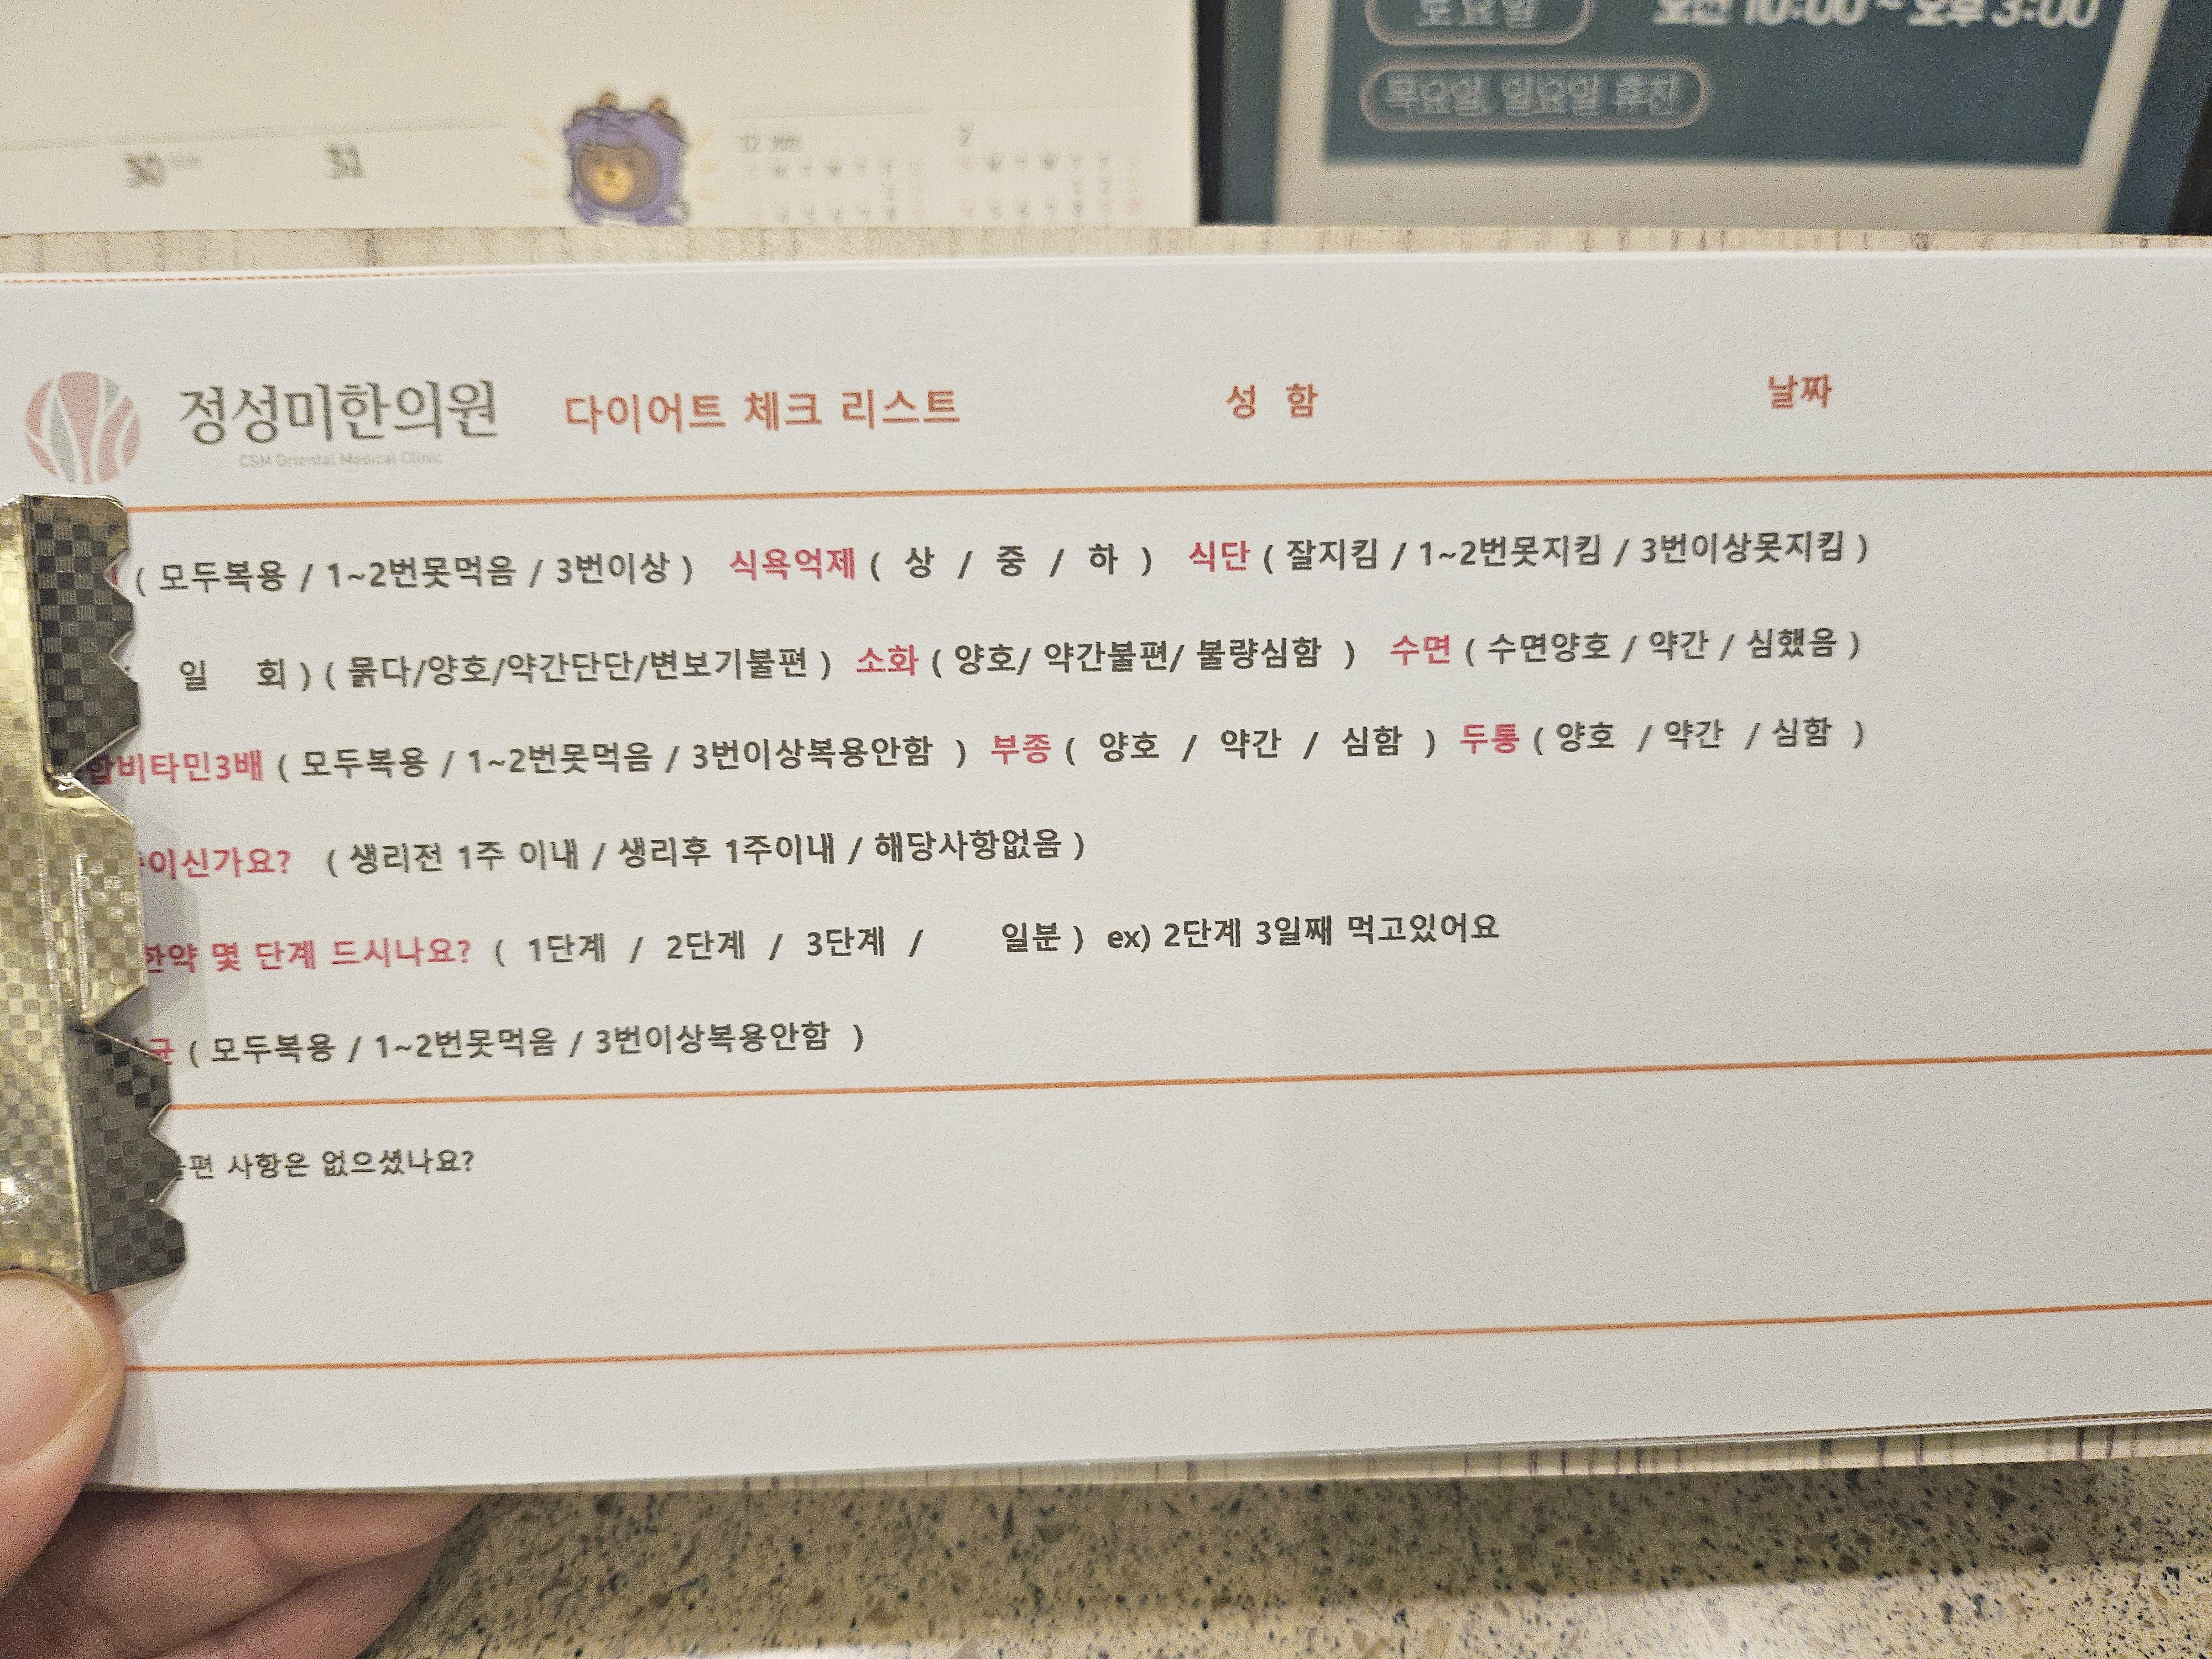 토요일 오전 10:00 ~ 오후 3:00
목요일, 일요일 휴진
30 31
정성미한의원 다이어트 체크 리스트 성 함 날짜
CSM Oriental Medical Clinic
( 모두복용 / 1~2번못먹음 / 3번이상 ) 식욕억제 ( 상 / 중 / 하 ) 식단 ( 잘지킴 / 1~2번못지킴 / 3번이상못지킴 )
일 회 ) ( 묽다/양호/약간단단/변보기불편 ) 소화 ( 양호/ 약간불편/ 불량심함 ) 수면 ( 수면양호 / 약간 / 심했음 )
합비타민3배 ( 모두복용 / 1~2번못먹음 / 3번이상복용안함 ) 부종 ( 양호 / 약간 / 심함 ) 두통 ( 양호 / 약간 / 심함 )
이신가요? ( 생리전 1주 이내 / 생리후 1주이내 / 해당사항없음 )
한약 몇 단계 드시나요? ( 1단계 / 2단계 / 3단계 / 일분 ) ex) 2단계 3일째 먹고있어요
균 ( 모두복용 / 1~2번못먹음 / 3번이상복용안함 )
편 사항은 없으셨나요?